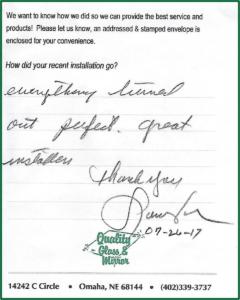 We want to know how we did so we can provide the best service and
products! Please let us know, an addressed & stamped envelope is
enclosed for your convenience.
How did your recent installation go?
everything turned
out perfect. great
installers
Thank you
07-26-17
Quality
Glass &
Mirror
14242 C Circle • Omaha, NE 68144 • (402)339-3737